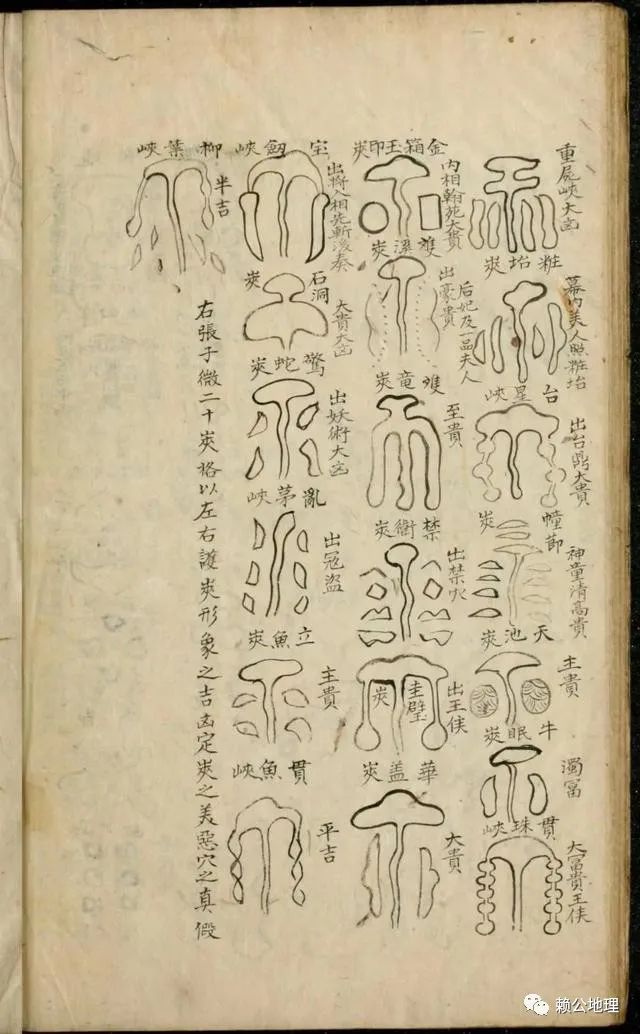 重屍峽大凶
粧坮峽
幕內美人照粧坮
台星峽
出台鼎大貴
幢節峽
神童清高貴
天池峽
主貴
牛眠峽
濁冨
貫珠峽
大冨貴王侯
金箱玉印峽
內相翰苑大貴
雙溪峽
后妃及一品夫人
出豪貴
雙竜峽
至貴
禁衙峽
出禁火
圭璧峽
出王侯
華盖峽
大貴
宝劔峽
出將入相先斬後奏
石洞峽
大貴大凶
驚蛇峽
出妖術大凶
亂茅峽
出冦盜
立魚峽
主貴
貫魚峽
平吉
柳葉峽
半吉
右張子微二十峽格以左右護峽形象之吉凶定峽之美惡穴之真假
赖公地理